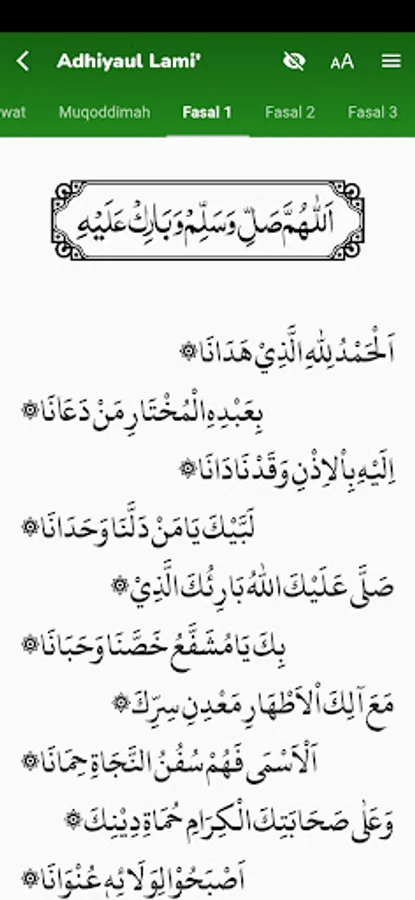 Adhiyaul Lami'
AA
wat Muqoddimah Fasal 1 Fasal 2 Fasal 3
اَللّٰهُمَّ صَلِّ وَسَلِّمْ وَبَارِكْ عَلَيْهِ
اَلْحَمْدُ لِلّٰهِ الَّذِيْ هَدَانَا۞
بِعَبْدِهِ الْمُخْتَارِ مَنْ دَعَانَا۞
اِلَيْهِ بِاْلاِذْنِ وَقَدْ نَادَانَا۞
لَبَّيْكَ يَا مَنْ دَلَّنَا وَحَدَانَا۞
صَلَّى عَلَيْكَ اللهُ بَارِئُكَ الَّذِيْ۞
بِكَ يَا مُشَفَّعُ خَصَّنَا وَحَبَانَا۞
مَعَ آلِكَ اْلاَطْهَارِ مَعْدِنِ سِرِّكَ۞
اَلْاَسْمَى فَهُمْ سُفُنُ النَّجَاةِ حِمَانَا۞
وَعَلٰى صَحَابَتِكَ الْكِرَامِ حُمَاةِ دِيْنِكَ۞
اَصْبَحُوْا لِوَلَائِهٖ عُنْوَانَا۞